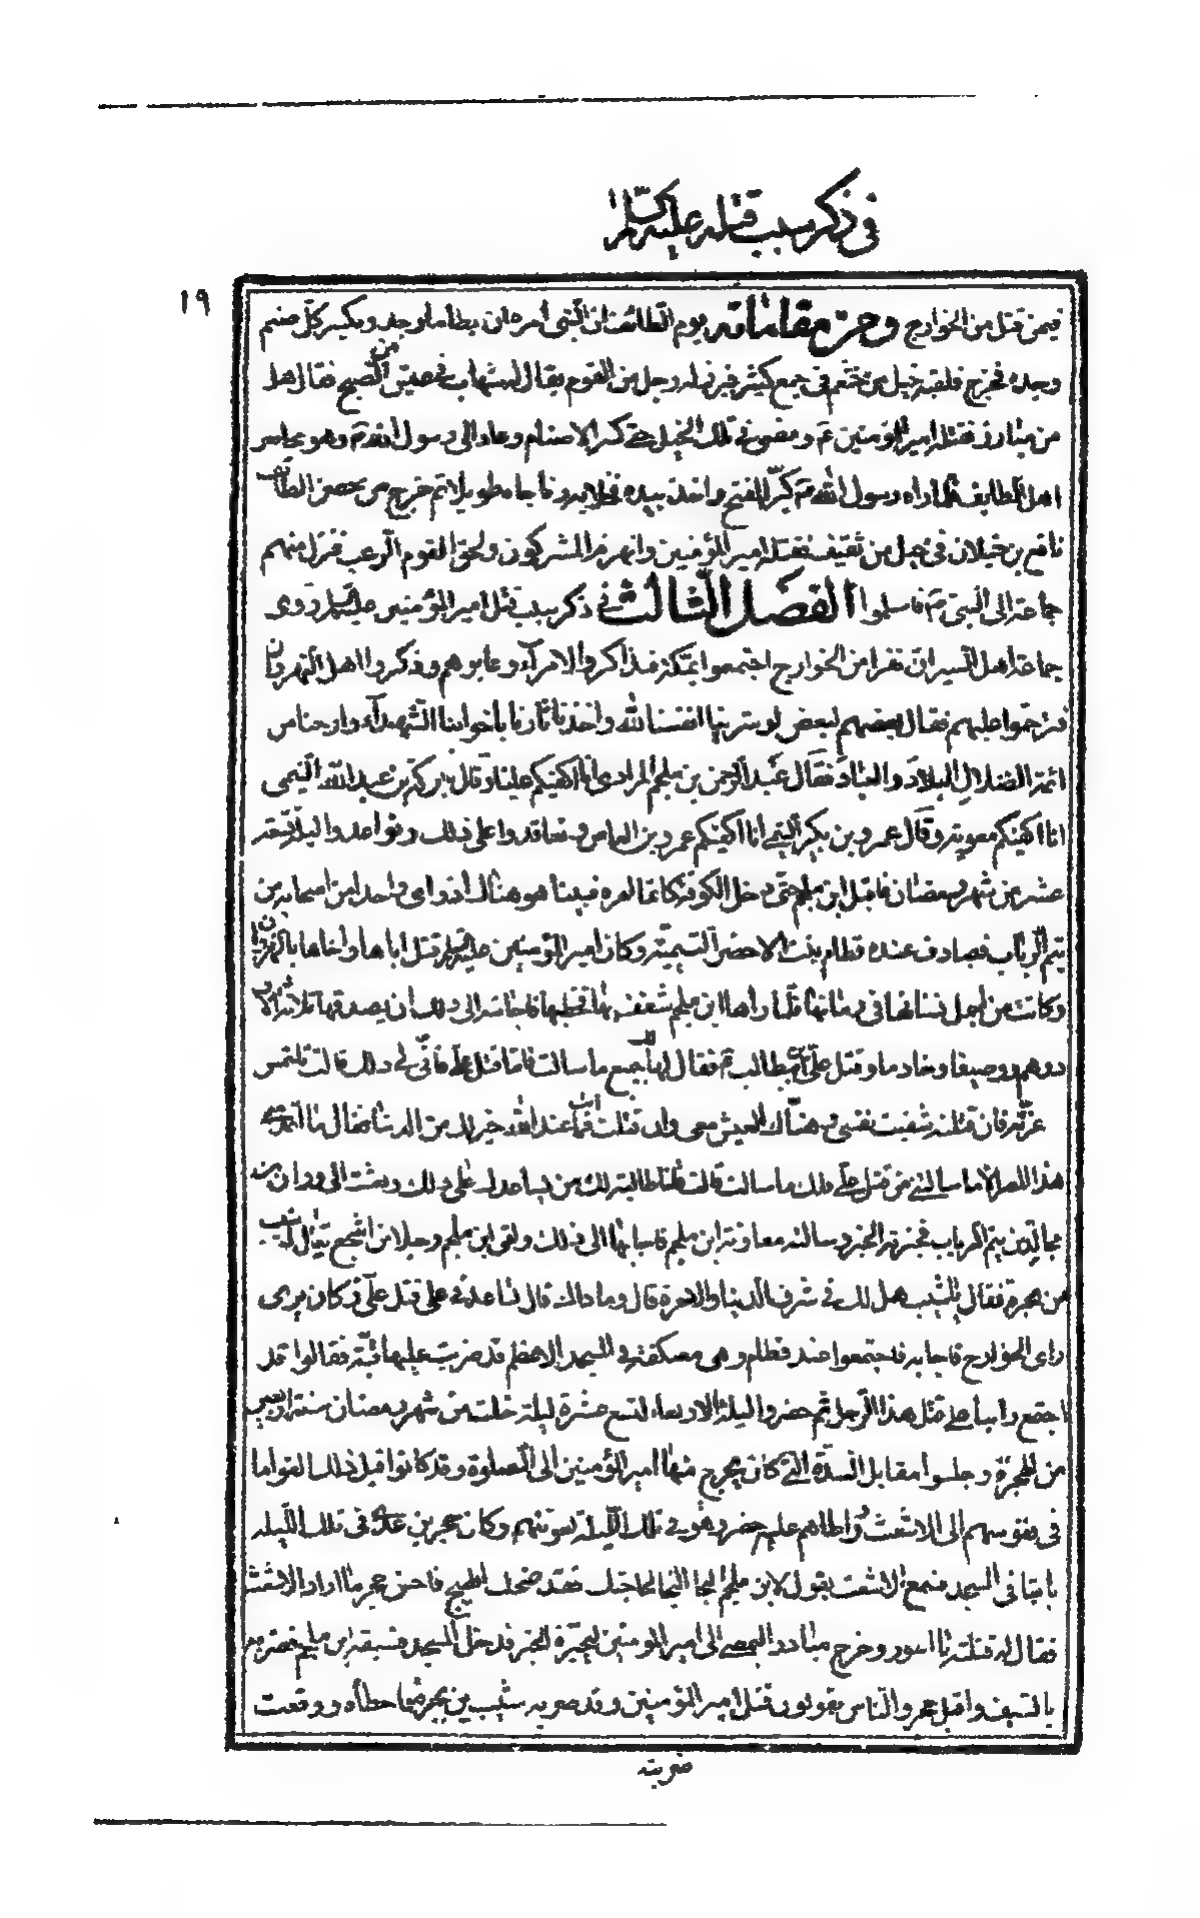 في ذكر سبب قتله عليه السلام
١٩
فيمن قتل من الخوارج ومن مقاماته يوم الطائف ان النبي أمره ان يطأ ما وجد ويكسر كل صنم
وجده فخرج فلقيته خيل من خثعم في جمع كثير فبرز له رجل من القوم يقال له شهاب في غبش من الصبح فقال هل
من مبارز فقتله امير المؤمنين ع ومضى في تلك الخيل حتى كسر الاصنام وعاد الى رسول الله ص وهو محاصر
اهل الطايف فلما راه رسول الله ص كبر للفتح واخذ بيده فخلا به وناجاه طويلا ثم خرج من حصن الطائف
نافع بن غيلان في خيل من ثقيف فقتله امير المؤمنين وانهزم المشركون ولحق القوم الرعب فنزل منهم
جماعة الى النبي ص فاسلموا الفصل الثالث في ذكر سبب قتل امير المؤمنين عليه السلم روى
جماعة اهل السير ان نفرا من الخوارج اجتمعوا بمكة فتذاكروا الامراء وعابوهم وذكروا اهل النهروان
فترحموا عليهم فقال بعضهم لبعض لو شرينا انفسنا لله واخذنا ثارنا باخواننا الشهداء وارحنا من
ائمة الضلال البلاد والعباد فقال عبد الرحمن بن ملجم المرادي انا اكفيكم عليا وقال برك بن عبد الله التيمي
انا اكفيكم معوية وقال عمرو بن بكر التيمي انا اكفيكم عمرو بن العاص وتعاقدوا على ذلك وتواعدوا ليلة تسعة
عشر من شهر رمضان فاقبل ابن ملجم حتى دخل الكوفة كاتما امره فبينا هو هناك اذ راى واحدا من اصحابه من
تيم الرباب فصادف عنده قطام بنت الاخضر التيمية وكان امير المؤمنين عليه السلم قتل اباها واخاها بالنهروان
وكانت من اجمل نسائها في زمانها فلما راها ابن ملجم شغف بها فخطبها فاجابته الى ذلك ان يصدقها ثلاثة الاف
درهم ووصيفا وخادما وقتل علي بن ابيطالب ع فقال لها لك جميع ما سالت فاما قتل علي فاني لي ذلك قالت تلتمس
غرته فان قتلته شفيت نفسي وهناك العيش معي وان قتلت فما عند الله خير لك من الدنيا فقال ما اقدمني
هذا المصر الا ما سالتني من قتل علي فلك ما سالت قالت فانا طالبة لك من يساعدك على ذلك وبعثت الى وردان بن
مجالد من تيم الرباب فخبرته الخبر وسالته معاونة ابن ملجم فاجابها الى ذلك ولقى ابن ملجم رجلا من اشجع يقال له شبيب
بن بجرة فقال يا شبيب هل لك في شرف الدنيا والاخرة قال وما ذاك قال تساعدني على قتل علي وكان يرى
راى الخوارج فاجابه فاجتمعوا عند قطام وهي معتكفة في المسجد الاعظم قد ضربت عليها قبة فقالوا قد
اجتمع راينا على قتل هذا الرجل ثم حضروا ليلة الاربعاء لتسع عشرة ليلة خلت من شهر رمضان سنة اربعين
من الهجرة وجلسوا مقابل السدة التي كان يخرج منها امير المؤمنين الى الصلوة وقد كانوا قبل ذلك القوا ما
في نفوسهم الى الاشعث وواطاهم عليه حضر هو في تلك الليلة لمعونتهم وكان حجر بن عدي في تلك الليلة
بايتا في المسجد فسمع الاشعث يقول لابن ملجم النجا النجا لحاجتك فقد ضحك الصبح فاحس حجر ما اراد الاشعث
فقال له قتلته يا اعور وخرج مبادرا ليمضي الى امير المؤمنين ليخبره الخبر فدخل المسجد فسبقه ابن ملجم فضربه
بالسيف واقبل حجر والناس يقولون قتل امير المؤمنين وقد ضربه شبيب بن بجرة فاخطأه ووقعت
ضربته